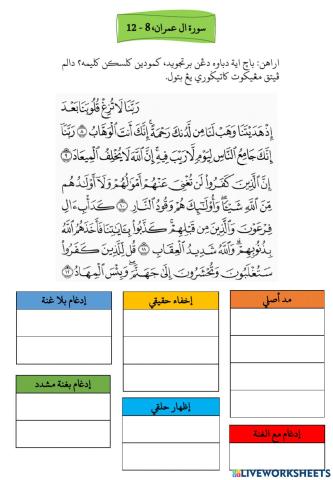 سورة ال عمران، 8 - 12
اراهن: باچ اية دباوه دڠن برتجويد، كمودين كلسكن كليمه٢ دالم
ڤيتق مڠيكوت كاتيݢوري يڠ بتول.
رَبَّنَا لَا تُزِغْ قُلُوبَنَا بَعْدَ
إِذْ هَدَيْتَنَا وَهَبْ لَنَا مِن لَّدُنكَ رَحْمَةً ۚ إِنَّكَ أَنتَ الْوَهَّابُ ٨ رَبَّنَا
إِنَّكَ جَامِعُ النَّاسِ لِيَوْمٍ لَّا رَيْبَ فِيهِ ۚ إِنَّ اللَّهَ لَا يُخْلِفُ الْمِيعَادَ ٩
إِنَّ الَّذِينَ كَفَرُوا لَن تُغْنِيَ عَنْهُمْ أَمْوَالُهُمْ وَلَا أَوْلَادُهُم
مِّنَ اللَّهِ شَيْئًا ۖ وَأُولَٰئِكَ هُمْ وَقُودُ النَّارِ ١٠ كَدَأْبِ آلِ
فِرْعَوْنَ وَالَّذِينَ مِن قَبْلِهِمْ ۚ كَذَّبُوا بِآيَاتِنَا فَأَخَذَهُمُ اللَّهُ
بِذُنُوبِهِمْ ۗ وَاللَّهُ شَدِيدُ الْعِقَابِ ١١ قُل لِّلَّذِينَ كَفَرُوا
سَتُغْلَبُونَ وَتُحْشَرُونَ إِلَىٰ جَهَنَّمَ ۚ وَبِئْسَ الْمِهَادُ ١٢
مد أصلي
إخفاء حقيقي
إدغام بلا غنة
إدغام بغنة مشدد
إظهار حلقي
إدغام مع الغنة
LIVEWORKSHEETS